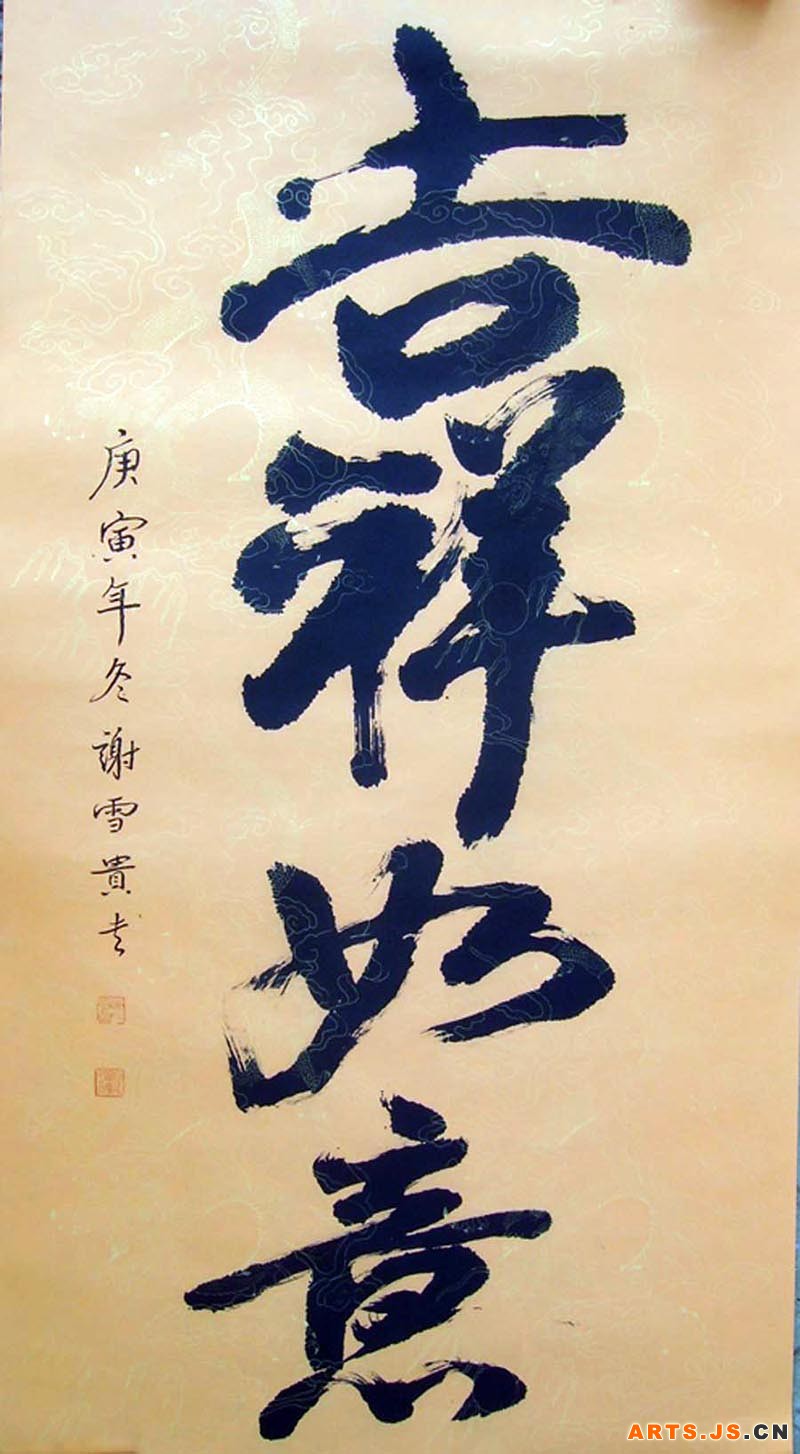 吉祥如意
庚寅年冬謝雪貴書
ARTS.JS.CN